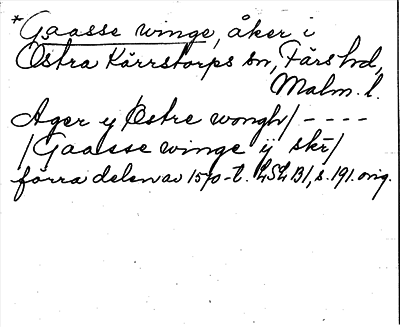 *Gaasse winge, åker i
Östra Kärrstorps sn, Färs hd,
Malm. l.
Ager y /Østre wongh/ - - - -
/Gaasse winge ij skr/
förra delen av 1570-t. LSLB1, s. 191. orig.